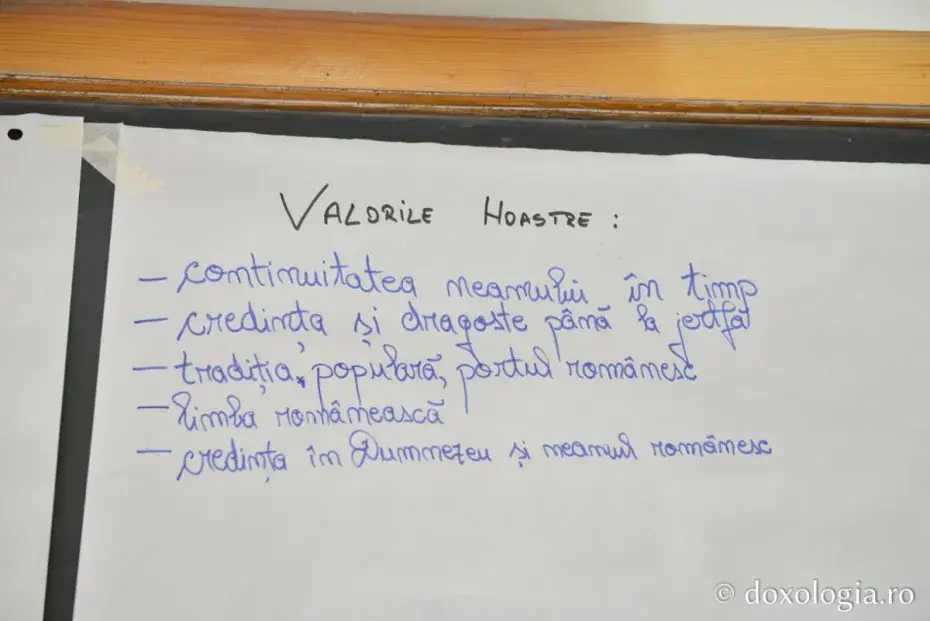 VALORILE NOASTRE :
– continuitatea neamului în timp
– credința și dragoste până la jertfă
– tradiția, populară, portul românesc
– limba românească
– credința în Dumnezeu și neamul românesc
© doxologia.ro